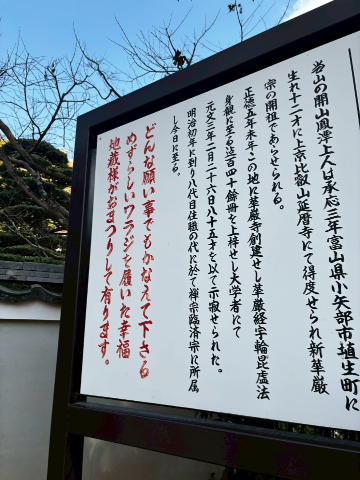 当山の開山鳳潭上人は承応三年富山県小矢部市埴生町に
生れ十二才に上京比叡山延暦寺にて得度せられ新華厳
宗の開祖であらせられる。
正徳五年末年この地に華厳寺創建せし華厳経宇輪毘盧法
身観に至る迄百四十餘冊を上梓せし大学者にて
元文三年二月二十六日八十五才を以て示寂せられた。
明治初年に到り八代目住職の代に於て禅宗臨済宗に所属
し今日に至る。
どんな願い事でもかなえて下さる
めずらしいワラジを履いた幸福
地蔵様がおまつりして有ります。